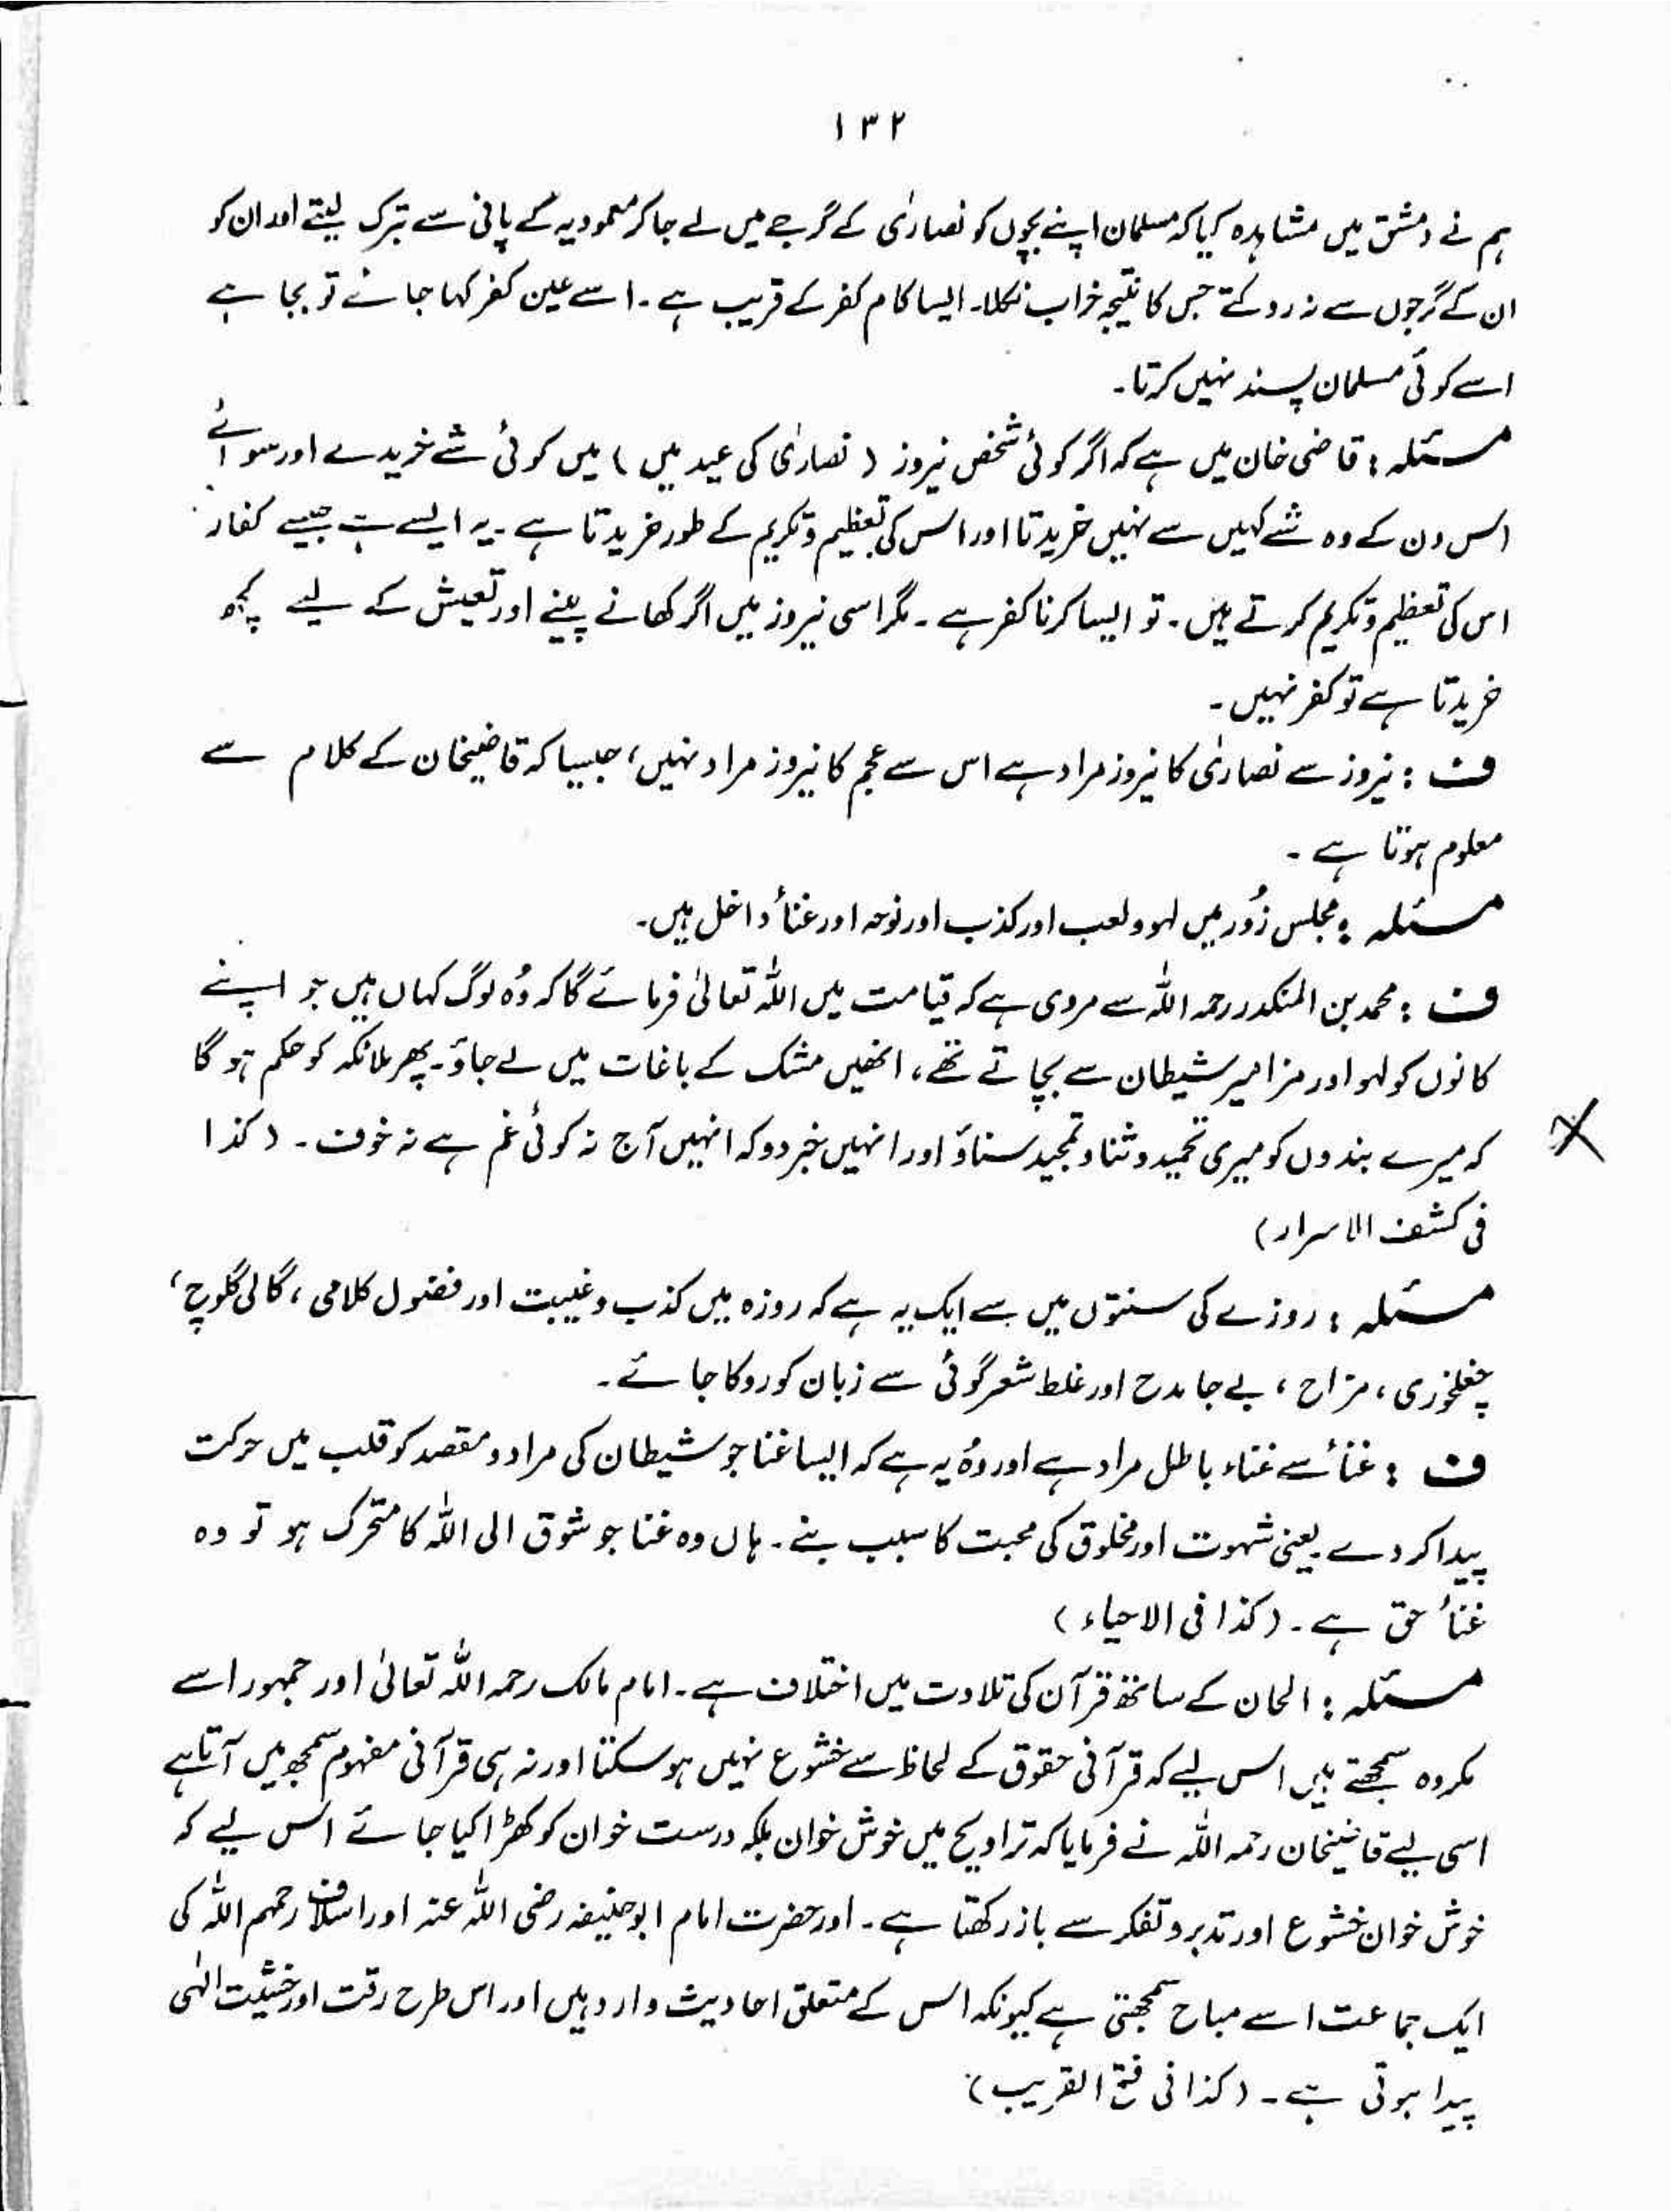 ۱۳۲
ہم نے دمشق میں مشاہدہ کیا کہ مسلمان اپنے بچوں کو نصارٰی کے گرجے میں لے جا کر معمودیہ کے پانی سے تبرک لیتے اور ان کو
ان کے گرجوں سے نہ روکتے جس کا نتیجہ خراب نکلا۔ ایسا کام کفر کے قریب ہے۔ اسے عین کفر کہا جائے تو بجا ہے
اسے کوئی مسلمان پسند نہیں کرتا۔
مسئلہ : قاضی خان میں ہے کہ اگر کوئی شخص نیروز ( نصارٰی کی عید میں ) میں کوئی شے خریدے اور سوائے
اس دن کے وہ شے کہیں سے نہیں خریدتا اور اس کی تعظیم و تکریم کے طور خریدتا ہے۔ یہ ایسے ہے جیسے کفار
اس کی تعظیم و تکریم کرتے ہیں۔ تو ایسا کرنا کفر ہے۔ مگر اسی نیروز میں اگر کھانے پینے اور تعیش کے لیے کچھ
خریدتا ہے تو کفر نہیں۔
ف : نیروز سے نصارٰی کا نیروز مراد ہے اس سے عجم کا نیروز مراد نہیں، جیسا کہ قاضیخان کے کلام سے
معلوم ہوتا ہے۔
مسئلہ : مجلس زُور میں لہو و لعب اور کذب اور نوحہ اور غناء داخل ہیں۔
ف : محمد بن المنکدر رحمہ اللہ سے مروی ہے کہ قیامت میں اللہ تعالیٰ فرمائے گا کہ وُہ لوگ کہاں ہیں جو اپنے
کانوں کو لہو اور مزامیر شیطان سے بچاتے تھے، انھیں مشک کے باغات میں لے جاؤ۔ پھر ملائکہ کو حکم ہو گا
کہ میرے بندوں کو میری تحمید و ثنا و تمجید سناؤ اور انہیں خبر دو کہ انہیں آج نہ کوئی غم ہے نہ خوف۔ ( کذا
فی کشف الاسرار )
مسئلہ : روزے کی سنتوں میں سے ایک یہ ہے کہ روزہ میں کذب و غیبت اور فضول کلامی، گالی گلوچ،
چغلخوری، مزاح، بے جا مدح اور غلط شعر گوئی سے زبان کو روکا جائے۔
ف : غناء سے غناء باطل مراد ہے اور وُہ یہ ہے کہ ایسا غنا جو شیطان کی مراد و مقصد کو قلب میں حرکت
پیدا کر دے یعنی شہوت اور مخلوق کی محبت کا سبب بنے۔ ہاں وہ غنا جو شوق الی اللہ کا متحرک ہو تو وہ
غناء حق ہے۔ ( کذا فی الاحیاء )
مسئلہ : الحان کے ساتھ قرآن کی تلاوت میں اختلاف ہے۔ امام مالک رحمہ اللہ تعالیٰ اور جمہور اسے
مکروہ سمجھتے ہیں اس لیے کہ قرآنی حقوق کے لحاظ سے خشوع نہیں ہو سکتا اور نہ ہی قرآنی مفہوم سمجھ میں آتا ہے
اسی لیے قاضیخان رحمہ اللہ نے فرمایا کہ تراویح میں خوش خوان بلکہ درست خوان کو کھڑا کیا جائے اس لیے کہ
خوش خوان خشوع اور تدبر و تفکر سے باز رکھتا ہے۔ اور حضرت امام ابوحنیفہ رضی اللہ عنہ اور اسلاف رحمہم اللہ کی
ایک جماعت اسے مباح سمجھتی ہے کیونکہ اس کے متعلق احادیث وارد ہیں اور اس طرح رقت اور خشیت الٰہی
پیدا ہوتی ہے۔ ( کذا فی فتح القریب )